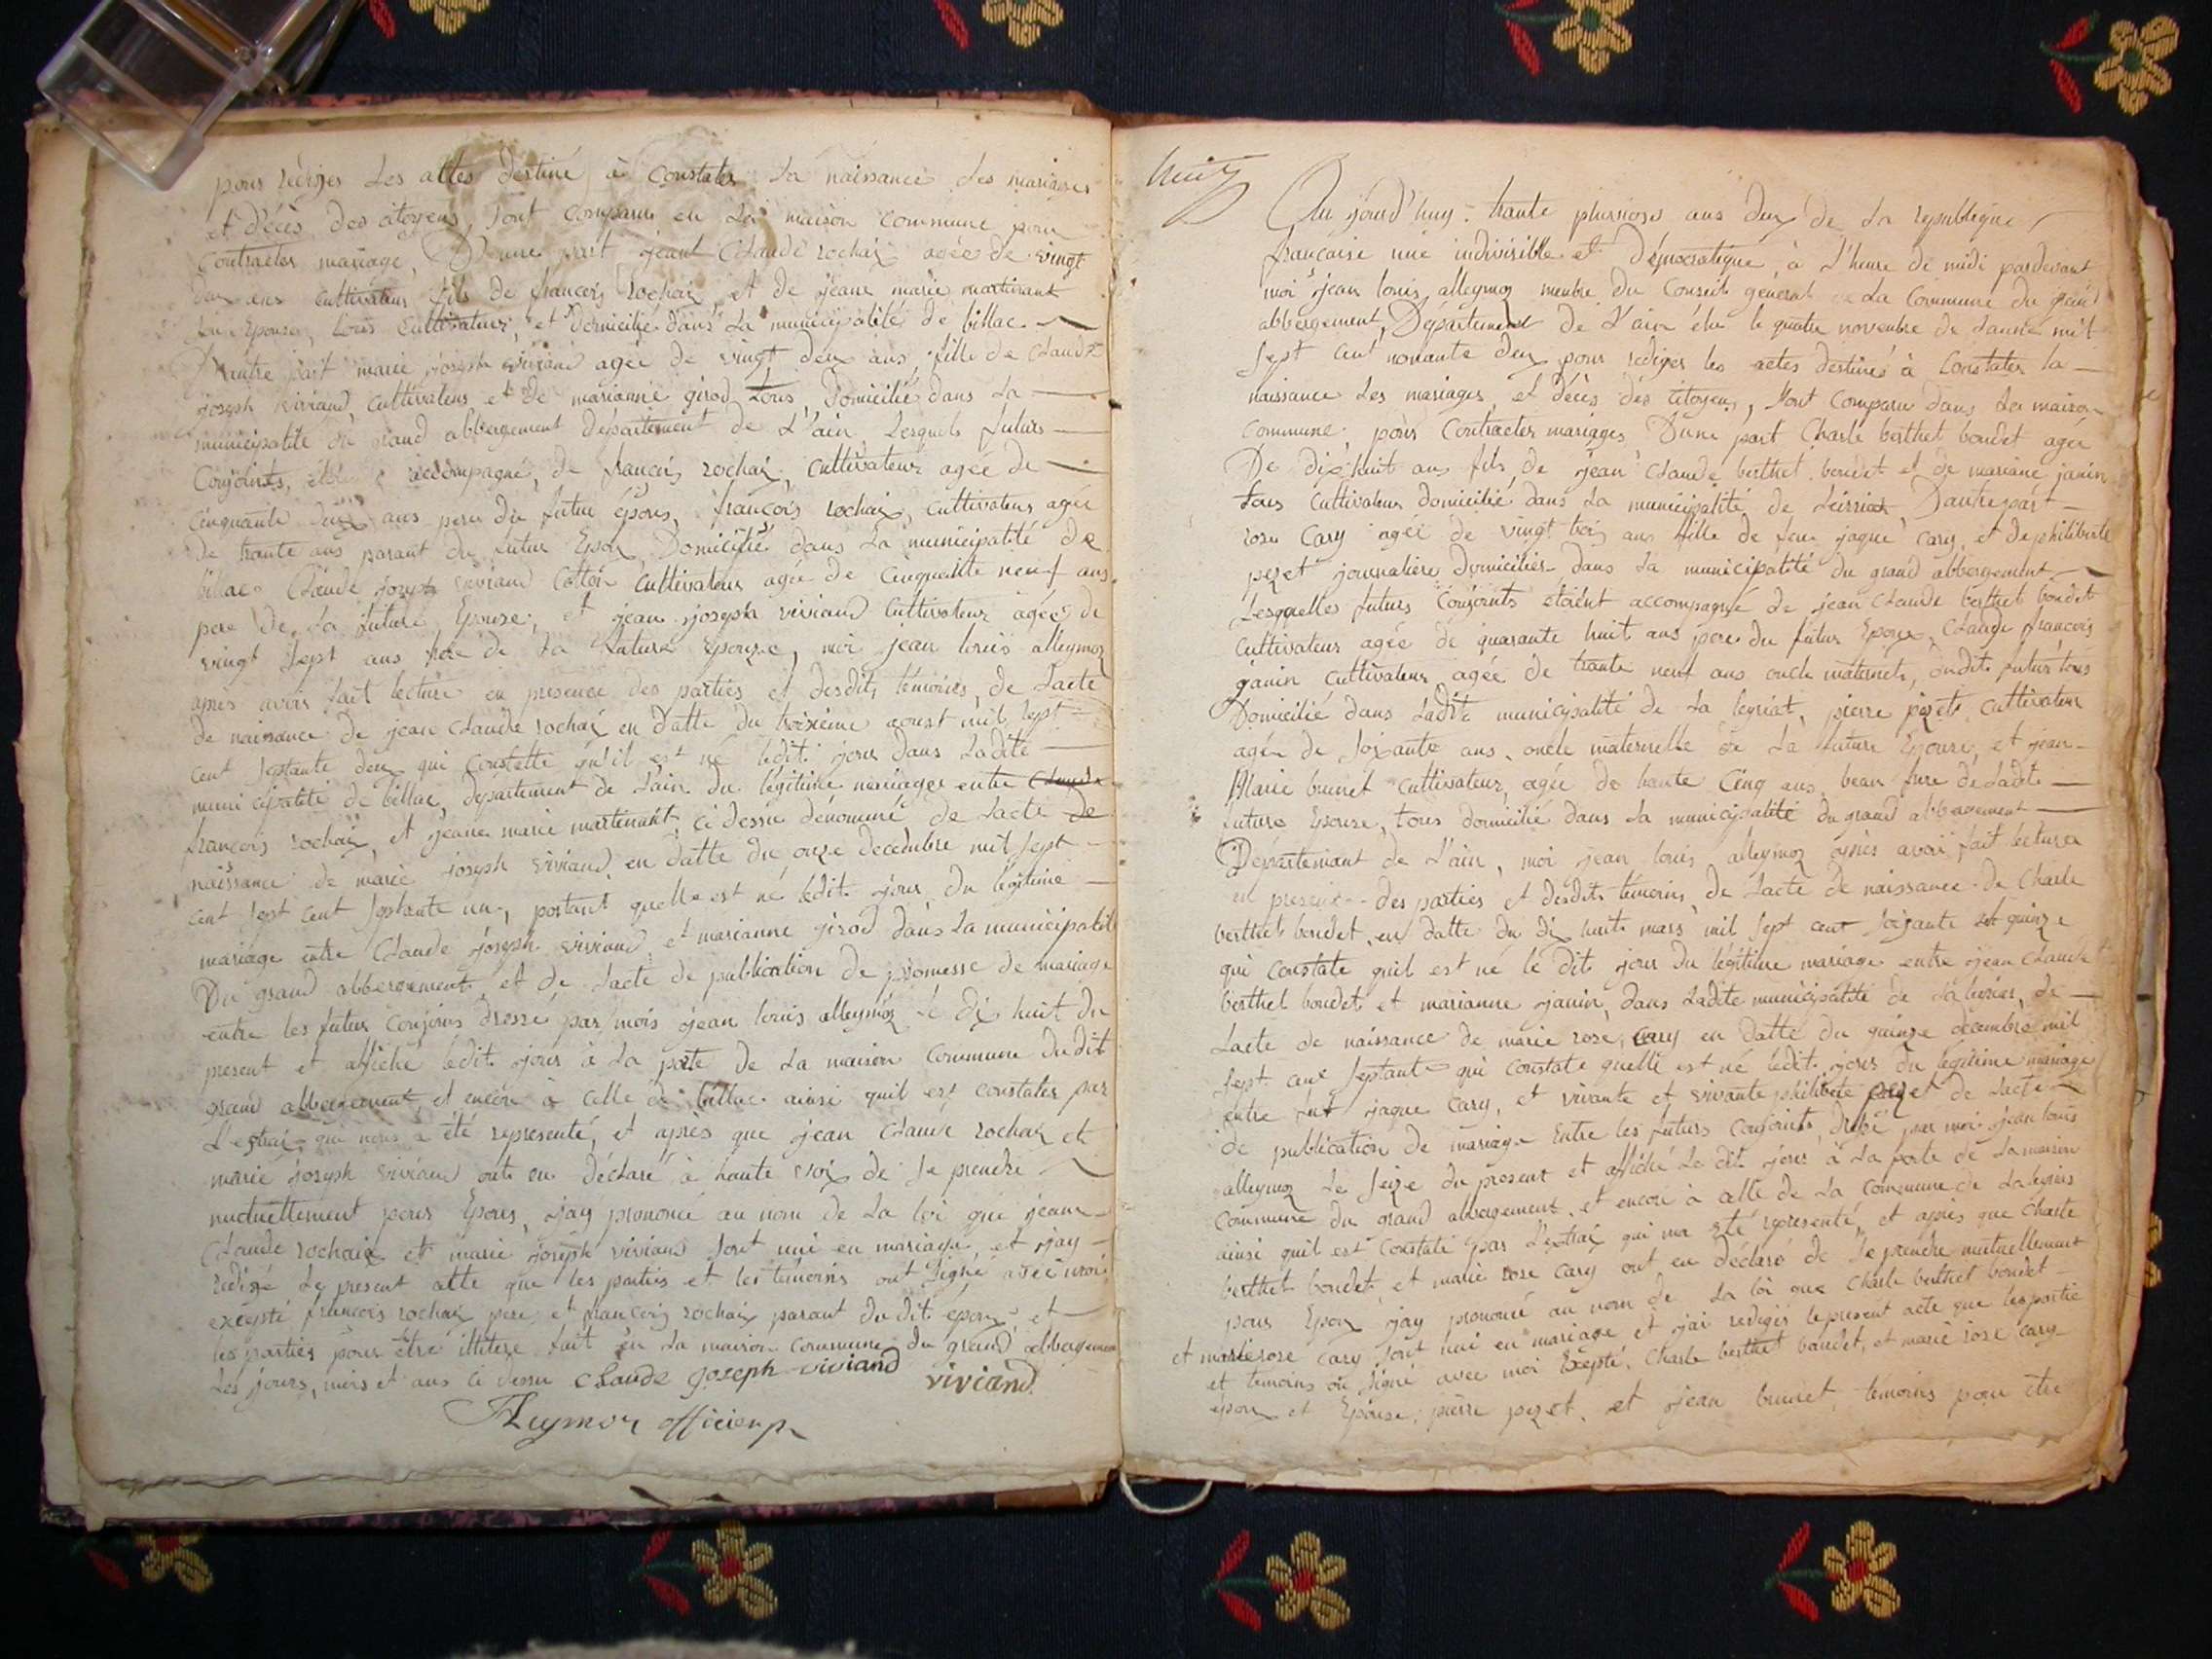 pour rediger Les attes destiné à Constater La naissance des mariages
et décès des citoyens, sont comparu en La maison commune pour
contracter mariage, D'une part jean Claude rochaix agée de vingt
deux ans cultivateur fils de francois rochaix et de jeane marie martinant
son Epouse, tous cultivateur, et domicilié dans La municipalité de billac
D'autre part marie joseph viviand agée de vingt deux ans, fille de claude
joseph viviand, cultivateur et de marianne girod tous, Domicilié dans La
municipalité du grand abbergement département de L'ain Lesquels futurs
Conjoints, étoient accompagné, de françois rochaix, cultivateur agée de
Cinquante deux ans pere du futur époux, françois rochaix, cultivateur agée
de trante ans parant du futur Epoux Domicilié dans La municipalité de
billac. Claude joseph viviand Cotton Cultivateur agée de Cinquante neuf ans
pere de La future Epouse, et jean joseph viviand Cultivateur agée de
vingt sept ans frere de La future Epouze, moi jean louis alleymoz
après avoir fait lecture en presence des parties et desdits témoins, de Lacte
de naissance de jean Claude rochaix en datte du troisième aoust mil sept
cent septante deux qui constatte qu'il est né ledit jour dans Ladite
municipalité de billac, département de Lain du légitime mariage entre Claude
françois rochaix, et jeane marie martenant ci dessu dénommé de Lacte de
naissance de marie joseph viviand, en datte du onze decembre mil sept
cent sept cent septante un, portant quelle est né ledit jour du légitime
mariage entre Claude joseph viviand et marianne girod dans La municipalité
Du grand abbergement, et de Lacte de publication de promesse de mariage
entre les futur conjoins dressé par mois jean louis alleymoz le dix huit du
present et affiché ledit jour à La porte de La maison Commune dudit
grand abbergement, et encore à Celle de billac ainsi quil est constater par
L'extraix qui nous a été representé, et après que jean Claude rochaix et
marie joseph viviand ont eu déclaré à haute voix de se prendre
mutuellement pour Epoux, jay prononcé au nom de La loi que jeane
Claude rochaix et marie joseph viviand sont uni en mariage, et jay
redigé Le present atte que les parties et les témoins ont signé avec moi
excepté francois rochaix pere, et francois rochaix parant du dit époux, et
les parties pour être illitere fait en La maison commune du grand abbergement
Les jours, mois et ans ci dessu Claude Joseph viviand viviand
Aleymoz officier p
huit
Au jourd'huy trante pluviose ans deux de La republique
française unie indivisible et Démocratique, à L'heure de midi pardevant
moi jean louis alleymoz menbre du Conseil general de La Commune du grand
abbergement, Departement de L'ain élu le quatre novembre de Lanné mil
sept cent nonante deux pour rediger les actes destinés à Constater la
naissance Les mariages, et décès des citoyens, sont comparu dans La maison
commune, pour contracter mariages Dune part Charle berthet bondet agée
De dix huit ans fils, de jean Claude berthet bondet et de mariane janin
tous cultivateur domicilié dans La municipalité de Leirriat D'autre part
rose Cary agée de vingt trois ans fille de feu jaque Cary et de philiberte
pezet journaliere Domiciliés dans La municipalité du grand abbergement
Lesquelles futurs conjoints étoient accompagné de jean Claude berthet bondet
cultivateur agée de quarante huit ans pere du futur Epoux, Claude francois
janin cultivateur agée de trante neuf ans oncle maternels, dudit futur tous
Domicilié dans Ladite municipalité de La leyriat, pierre pezet cultivateur
agée de soixante ans, oncle maternelle de La future Epouse, et jean
Marie brunet cultivateur, agée de trante Cinq ans, beau frere de Ladite
future Epouse, tous domicilié dans La municipalité du grand abbergement
Départemant de L'ain, moi jean louis alleymoz après avoir fait lecture
en presence des parties et desdits témoins, de Lacte de naissance de Charle
berthet bondet, en datte du dix huit mars mil sept cent soixante et quinze
qui constate quil est né le dit jour du légitime mariage entre jean Claude
berthet bondet et marianne janin, dans Ladite municipalité de Laleiriat, de
Lacte de naissance de marie rose, Cary en datte du quinze decembre mil
sept cent septante qui constate quelle est né ledit jour du légitime mariage
entre feu jaque Cary, et vivante et vivante philiberte pezet de Lacte
de publication de mariage Entre les futurs Conjoints, dressé par moi jean louis
alleymoz Le seize du present et affiché Le dit jour à La porte de La maison
Commune du grand abbergement, et encore à celle de La commune de Laleyriat
ainsi quil est constaté par L'extrai qui ma été representé, et après que Charle
berthet bondet, et marie rose Cary ont eu déclaré de se prendre mutuellement
pour Epoux jay prononcé au nom de La loi que Charle berthet bondet
et marie rose Cary sont uni en mariage et j'ai rediger le present acte que les partie
et temoins on signé avec moi Excepté, Charle berthet bondet, et marie rose cary
époux et Epouse, pierre pezet, et jean brunet, témoins pour être